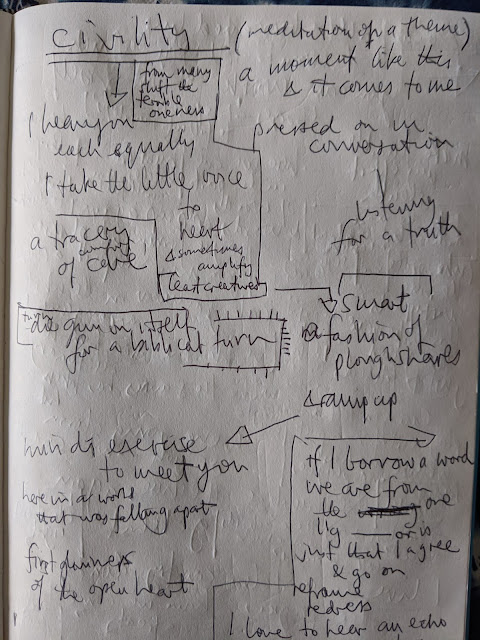 civility (meditation on a theme)
from many
the
terrible
oneness
a moment like this
& it comes to me
I hear you
each equally
I take the little voice
to
heart
& sometimes
amplify
least creatures
pressed on in
conversation
listening
for a truth
a tracery
of care
turn
the gun on itself
for a biblical turn
smart
a fashion of
ploughshares
& ramp up
mind's exercise
to meet you
here in a world
that was falling apart
first glimmers
of the open heart
If I borrow a word
we are from
the one
or is
just that I agree
& go on
reframe
redress
I love to hear an echo